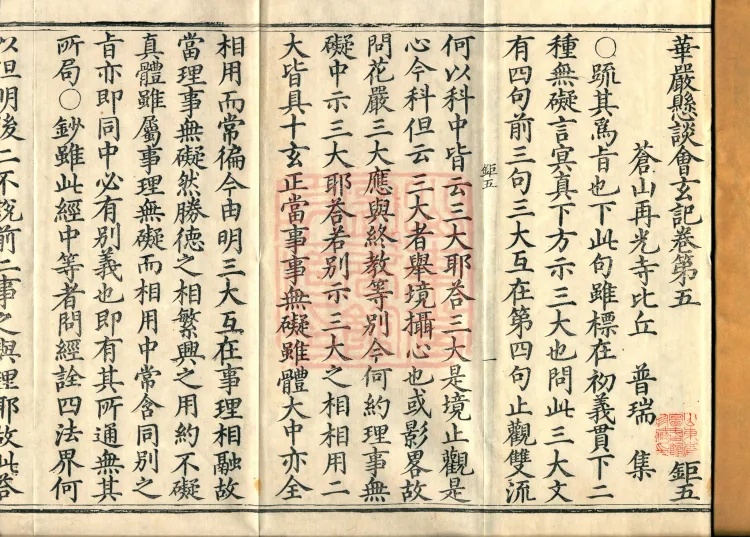 華嚴懸談會玄記卷第五 鉅五
蒼山再光寺比丘 普瑞 集
○䟽其爲旨也下此句雖標在初義貫下二
種無礙言冥真下方示三大也問此三大文
有四句前三句三大互在第四句止觀雙流
鉅五 一
何以科中皆云三大耶荅三大是境止觀是
心今科但云三大者舉境攝心也或影畧故
問花嚴三大應與終教等別今何約理事無
礙中示三大耶荅若別示三大之相相用二
大皆具十玄正當事事無礙雖體大中亦全
相用而常徧今由明三大互在事理相融故
當理事無礙然勝德之相繁興之用約不礙
真體雖屬事理無礙而相用中常含同別之
旨亦即同中必有別義也即有其所通無其
所局○鈔雖此經中等者問經詮四法界何
以但明後二不說前二事之與理耶故此荅